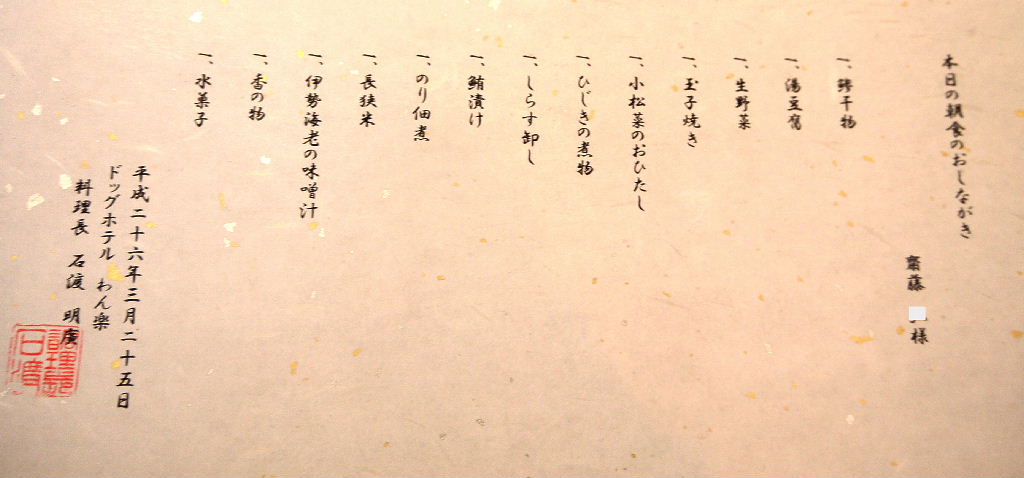 本日の朝食のおしながき
齋藤 様
一、鯵干物
一、湯豆腐
一、生野菜
一、玉子焼き
一、小松菜のおひたし
一、ひじきの煮物
一、しらす卸し
一、鮪漬け
一、のり佃煮
一、長狭米
一、伊勢海老の味噌汁
一、香の物
一、水菓子
平成二十六年三月二十五日
ドッグホテル わん楽
料理長 石渡 明廣